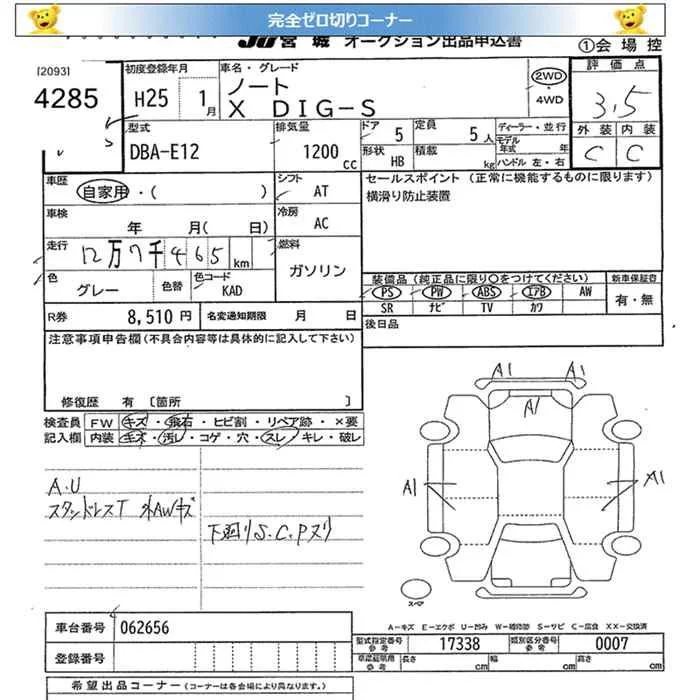 完全ゼロ切りコーナー
JU宮城 オークション出品申込書
①会場控
[2093]
4285
初度登録年月
H25 1月
車名・グレード
ノート
X DIG-S
2WD
・
4WD
評価点
3.5
外装 内装
C C
型式
DBA-E12
排気量
1200 cc
ドア 5
形状 HB
定員 5人
積載 kg
ディーラー・並行
モデル年式 年
ハンドル 左・右
車歴
自家用・( )
シフト
AT
セールスポイント (正常に機能するものに限ります)
横滑り防止装置
車検
年 月( 日)
冷房
AC
走行
12万7千465km
燃料
ガソリン
色
グレー
色替
色コード
KAD
装備品 (純正品に限り○をつけてください)
新車保証書
PS PW ABS エアB AW
SR ナビ TV カワ
有・無
R券 8,510円
名変通知期限 月 日
後日品
注意事項申告欄(不具合内容等は具体的に記入して下さい)
修復歴 有 〔箇所 〕
検査員記入欄
FW キズ・飛石・ヒビ割・リペア跡・×要
内装 キズ・汚レ・コゲ・穴・スレ・キレ・破レ
A.U
スタッドレスT 外AWキズ
下廻りS.C.Pヌリ
A1 A1
A1
A1 A1
スペア
A-キズ E-エクボ U-凹み W-補修跡 S-サビ C-腐食 XX-交換済
車台番号 062656
登録番号
型式指定番号 参考 17338
類別区分番号 参考 0007
車庫証明用 参考 長さ cm 幅 cm 高さ cm
希望出品コーナー (コーナーは各会場により異なります。)